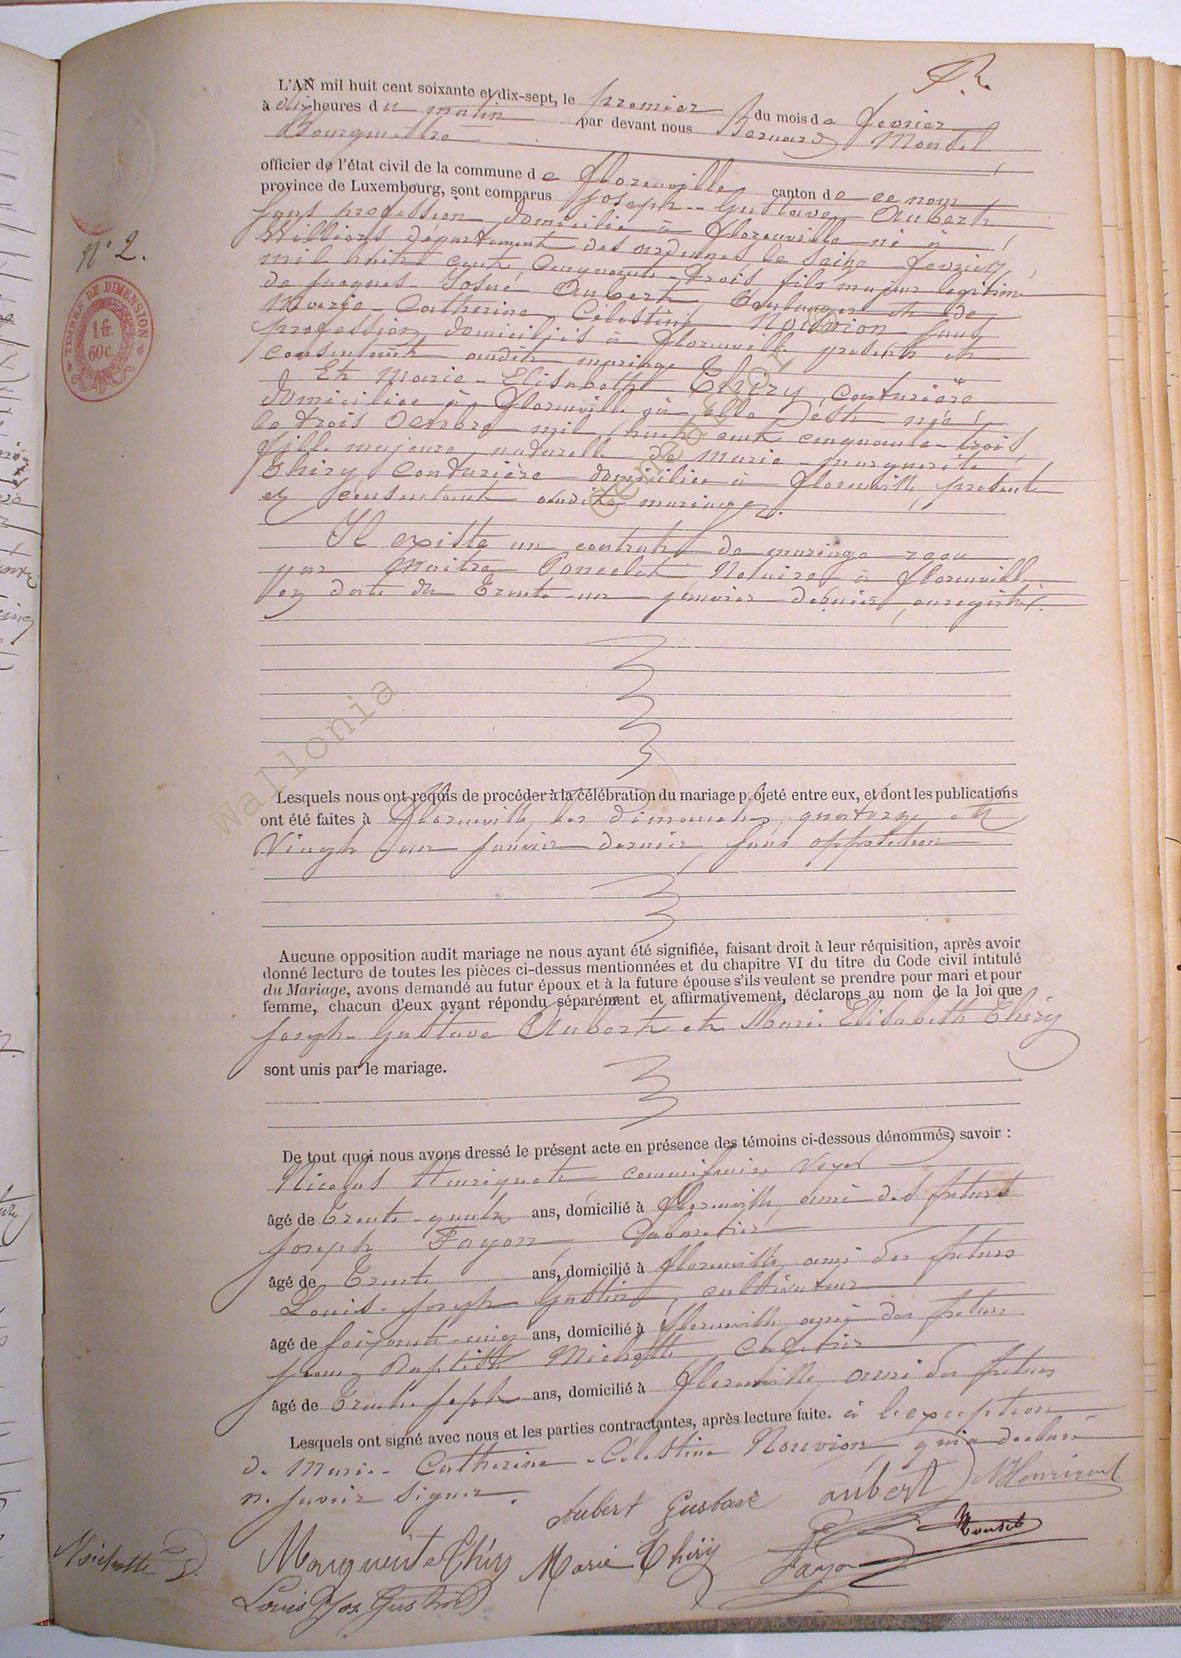 L'AN mil huit cent soixante et dix-sept, le premier du mois de fevrier
à dix heures du matin par devant nous Bernard Mondel,
Bourgmestre
officier de l'état civil de la commune de florenville canton de ce nom
province de Luxembourg, sont comparus Joseph-Gustave Aubert
sans profession domicilié à florenville né à
N° 2.
Williers département des ardennes le seize fevrier
mil huit cent cinquante-trois fils majeur legitime
de Jacques-Josué Aubert, Boulanger et de
TIMBRE DE DIMENSION
1 fr
60c.
Marie-Catherine-Célestine Nouvion sans
profession domiciliés à florenville présents et
consentant audit mariage
Et Marie-Elisabeth Thiry, couturière
domiciliée à florenville où elle est née
le trois Octobre mil huit cent cinquante-trois,
fille majeure naturelle de Marie-Marguerite
Thiry, couturière domiciliée à florenville, présente
et consentant audit mariage.
Il existe un contrat de mariage reçu
par Maitre Poncelet Notaire à florenville
en date du Trente-un janvier dernier, enregistré.
Wallonia
Lesquels nous ont requis de procéder à la célébration du mariage projeté entre eux, et dont les publications
ont été faites à florenville, les dimanches quatorze et
Vingt un Janvier dernier, sans opposition
Aucune opposition audit mariage ne nous ayant été signifiée, faisant droit à leur réquisition, après avoir
donné lecture de toutes les pièces ci-dessus mentionnées et du chapitre VI du titre du Code civil intitulé
du Mariage, avons demandé au futur époux et à la future épouse s'ils veulent se prendre pour mari et pour
femme, chacun d'eux ayant répondu séparément et affirmativement, déclarons au nom de la loi que
Joseph-Gustave Aubert et Marie Elisabeth Thiry
sont unis par le mariage.
De tout quoi nous avons dressé le présent acte en présence des témoins ci-dessous dénommés, savoir :
Nicolas Henriquet commissaire Voyer
âgé de Trente-quatre ans, domicilié à florenville, ami des futurs
Joseph Fayon, Cabaretier
âgé de Trente ans, domicilié à florenville, ami des futurs
Louis-Joseph Gustin, cultivateur
âgé de soixante-cinq ans, domicilié à florenville, ami des futurs
Jean Baptiste Michotte, cafetier
âgé de Trente sept ans, domicilié à florenville, ami des futurs
Lesquels ont signé avec nous et les parties contractantes, après lecture faite. à l'exception
de Marie-Catherine-Célestine Nouvion, qui a declaré
ne savoir signer.
Aubert Gustave aubert NHenriquet
Michotte Marguerite Thiry Marie Thiry Fayon Mondel
Louis Jos. Gustin